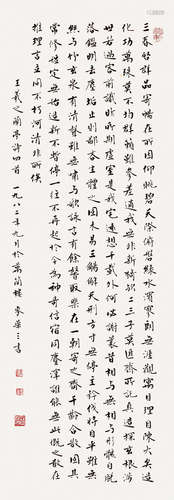 三春啟群品寄暢在所因仰眺碧天際俯磐綠水濱寥朗無涯觀寓目理自陳大矣造
化功萬殊莫不均群籟雖參差適我無非新猗與二三子莫匪齊所託造真探玄根涉
世若過客前識非所期虛室是我宅遠想千載外何必謝曩昔相與無相與形骸自脫
落鑑明去塵垢止則鄙吝生體之固未易三觴解天刑方寸無停主矜伐將自平雖無
絲與竹玄泉有清聲雖無嘯與歌詠言有餘馨取樂在一朝寄之齊千齡合散固其
常修短定無始造新不暫停一往不再起於今為神奇信宿同塵滓誰能無此慨之散在
推理言立同不朽河清非所俟
王羲之蘭亭詩四首 一九八二年九月於萬蘭樓 麥華三書